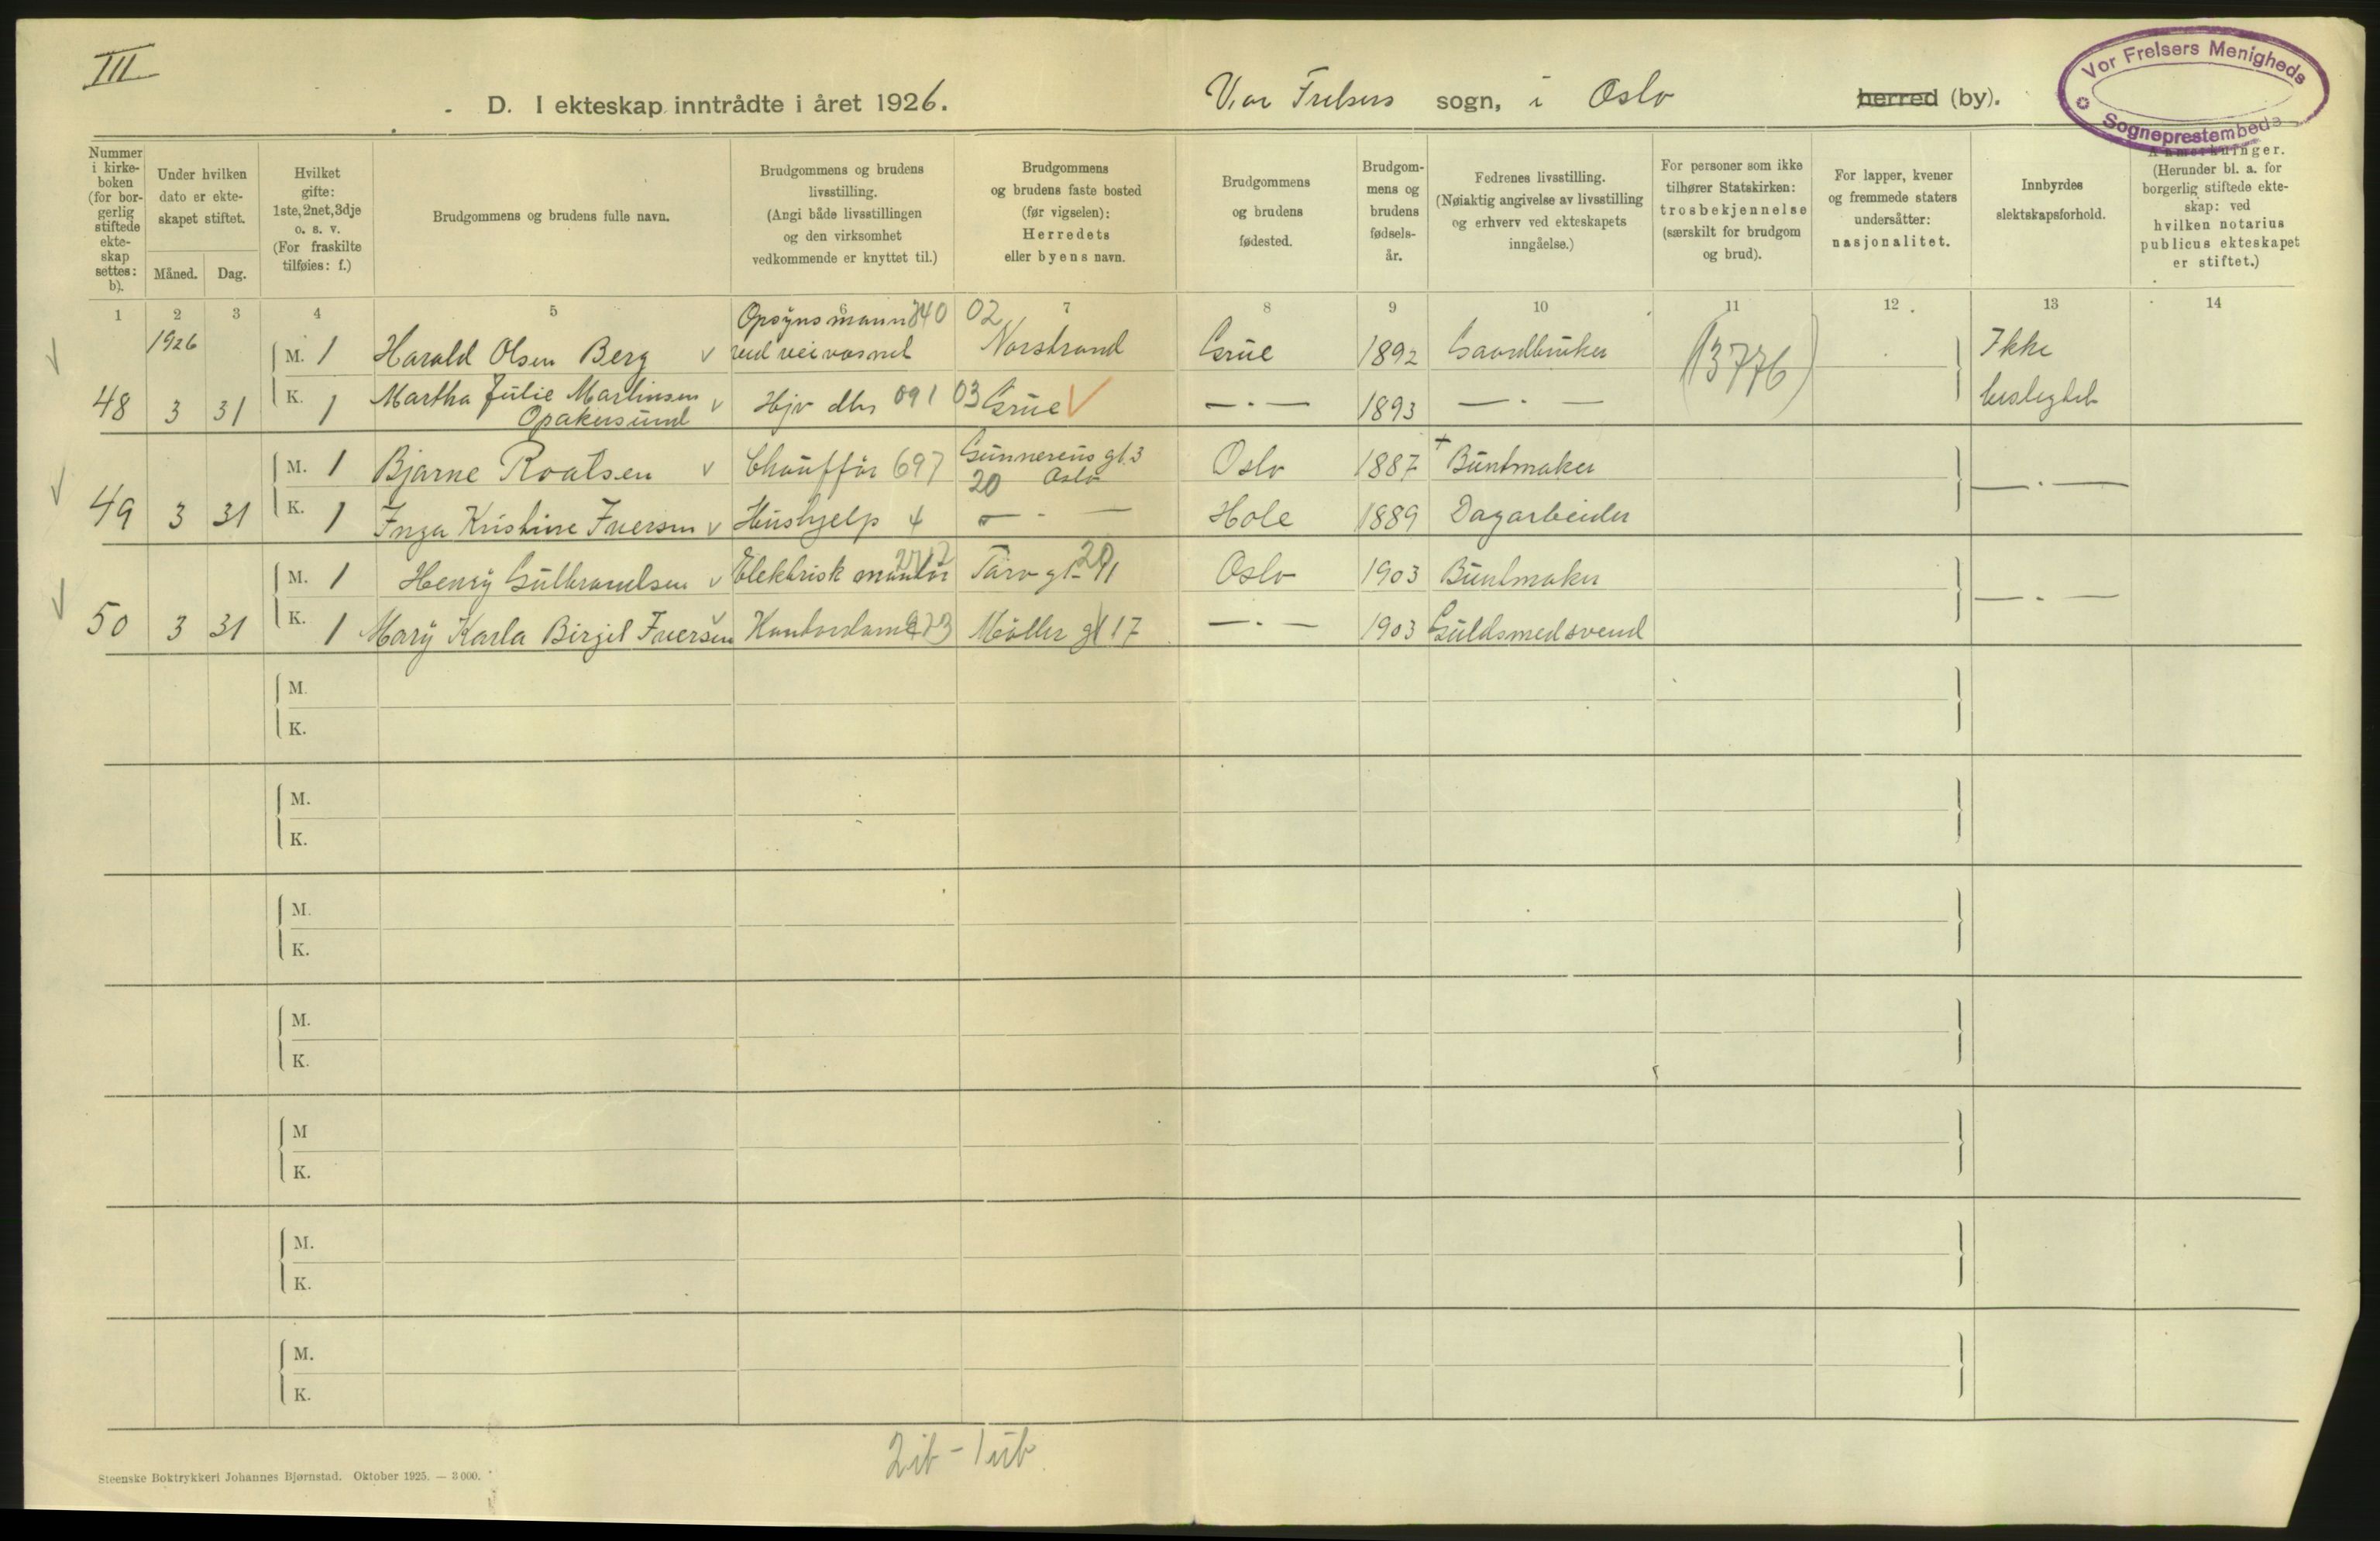 III
D. I ekteskap inntrådte i året 1926.
Vor Frelsers sogn, i Oslo herred (by).
Vor Frelsers Menigheds
Sogneprestembede
Nummer
i kirke-
boken
(for bor-
gerlig
stiftede
ekte-
skap
settes:
b).
Under hvilken
dato er ekte-
skapet stiftet.
Måned. Dag.
Hvilket
gifte:
1ste, 2net, 3dje
o. s. v.
(For fraskilte
tilføies: f.)
Brudgommens og brudens fulle navn.
Brudgommens og brudens
livsstilling.
(Angi både livsstillingen
og den virksomhet
vedkommende er knyttet til.)
Brudgommens
og brudens faste bosted
(før vigselen):
Herredets
eller byens navn.
Brudgommens
og brudens
fødested.
Brudgom-
mens og
brudens
fødsels-
år.
Fedrenes livsstilling.
(Nøiaktig angivelse av livsstilling
og erhverv ved ekteskapets
inngåelse.)
For personer som ikke
tilhører Statskirken:
trosbekjennelse
(særskilt for brudgom
og brud).
For lapper, kvener
og fremmede staters
undersåtter:
nasjonalitet.
Innbyrdes
slektskapsforhold.
Anmerkninger.
(Herunder bl. a. for
borgerlig stiftede ekte-
skap: ved
hvilken notarius
publicus ekteskapet
er stiftet.)
1 2 3 4 5 6 7 8 9 10 11 12. 13 14
1926
Opsynsmann 340 02
M. 1 Harald Olsen Berg v ved veivæsnet Norstrand Grue 1892 Gaardbruker (13776) Ikke
48 3 31 K. 1 Martha Julie Martinsen v Hjv dtr 091 03 Grue V — . — 1893 — . — beslegtet
Opakersund
M. 1 Bjarne Roalsen v Chauffør 697 Gunnerus gt. 3 Oslo 1887 + Buntmaker
20 Oslo
49 3 31 K. 1 Inga Kristine Iversen v Hushjelp 4 — - — Hole 1889 Dagarbeider — . —
M. 1 Henry Gulbrandsen v Elektrisk montør Oslo 1903 Buntmaker
50 3 31 K. 1 Mary Karla Birgit Iversen Kontordame Møller gt 17 — . — 1903 Guldsmedsvend — . —
M.
K.
M.
K.
M.
K.
M.
K.
M
K.
M.
K.
M.
K.
2 ib - 1 ub
Steenske Boktrykkeri Johannes Bjørnstad. Oktober 1925. — 3000.